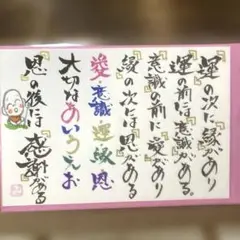 『運』の次に『縁』があり
『運』の前には『意識』がある。
『意識』の前に『愛』があり
『縁』の次には『恩』がある
愛・意識・運・縁・恩
大切なあいうえお
『恩』の後には『感謝』がある